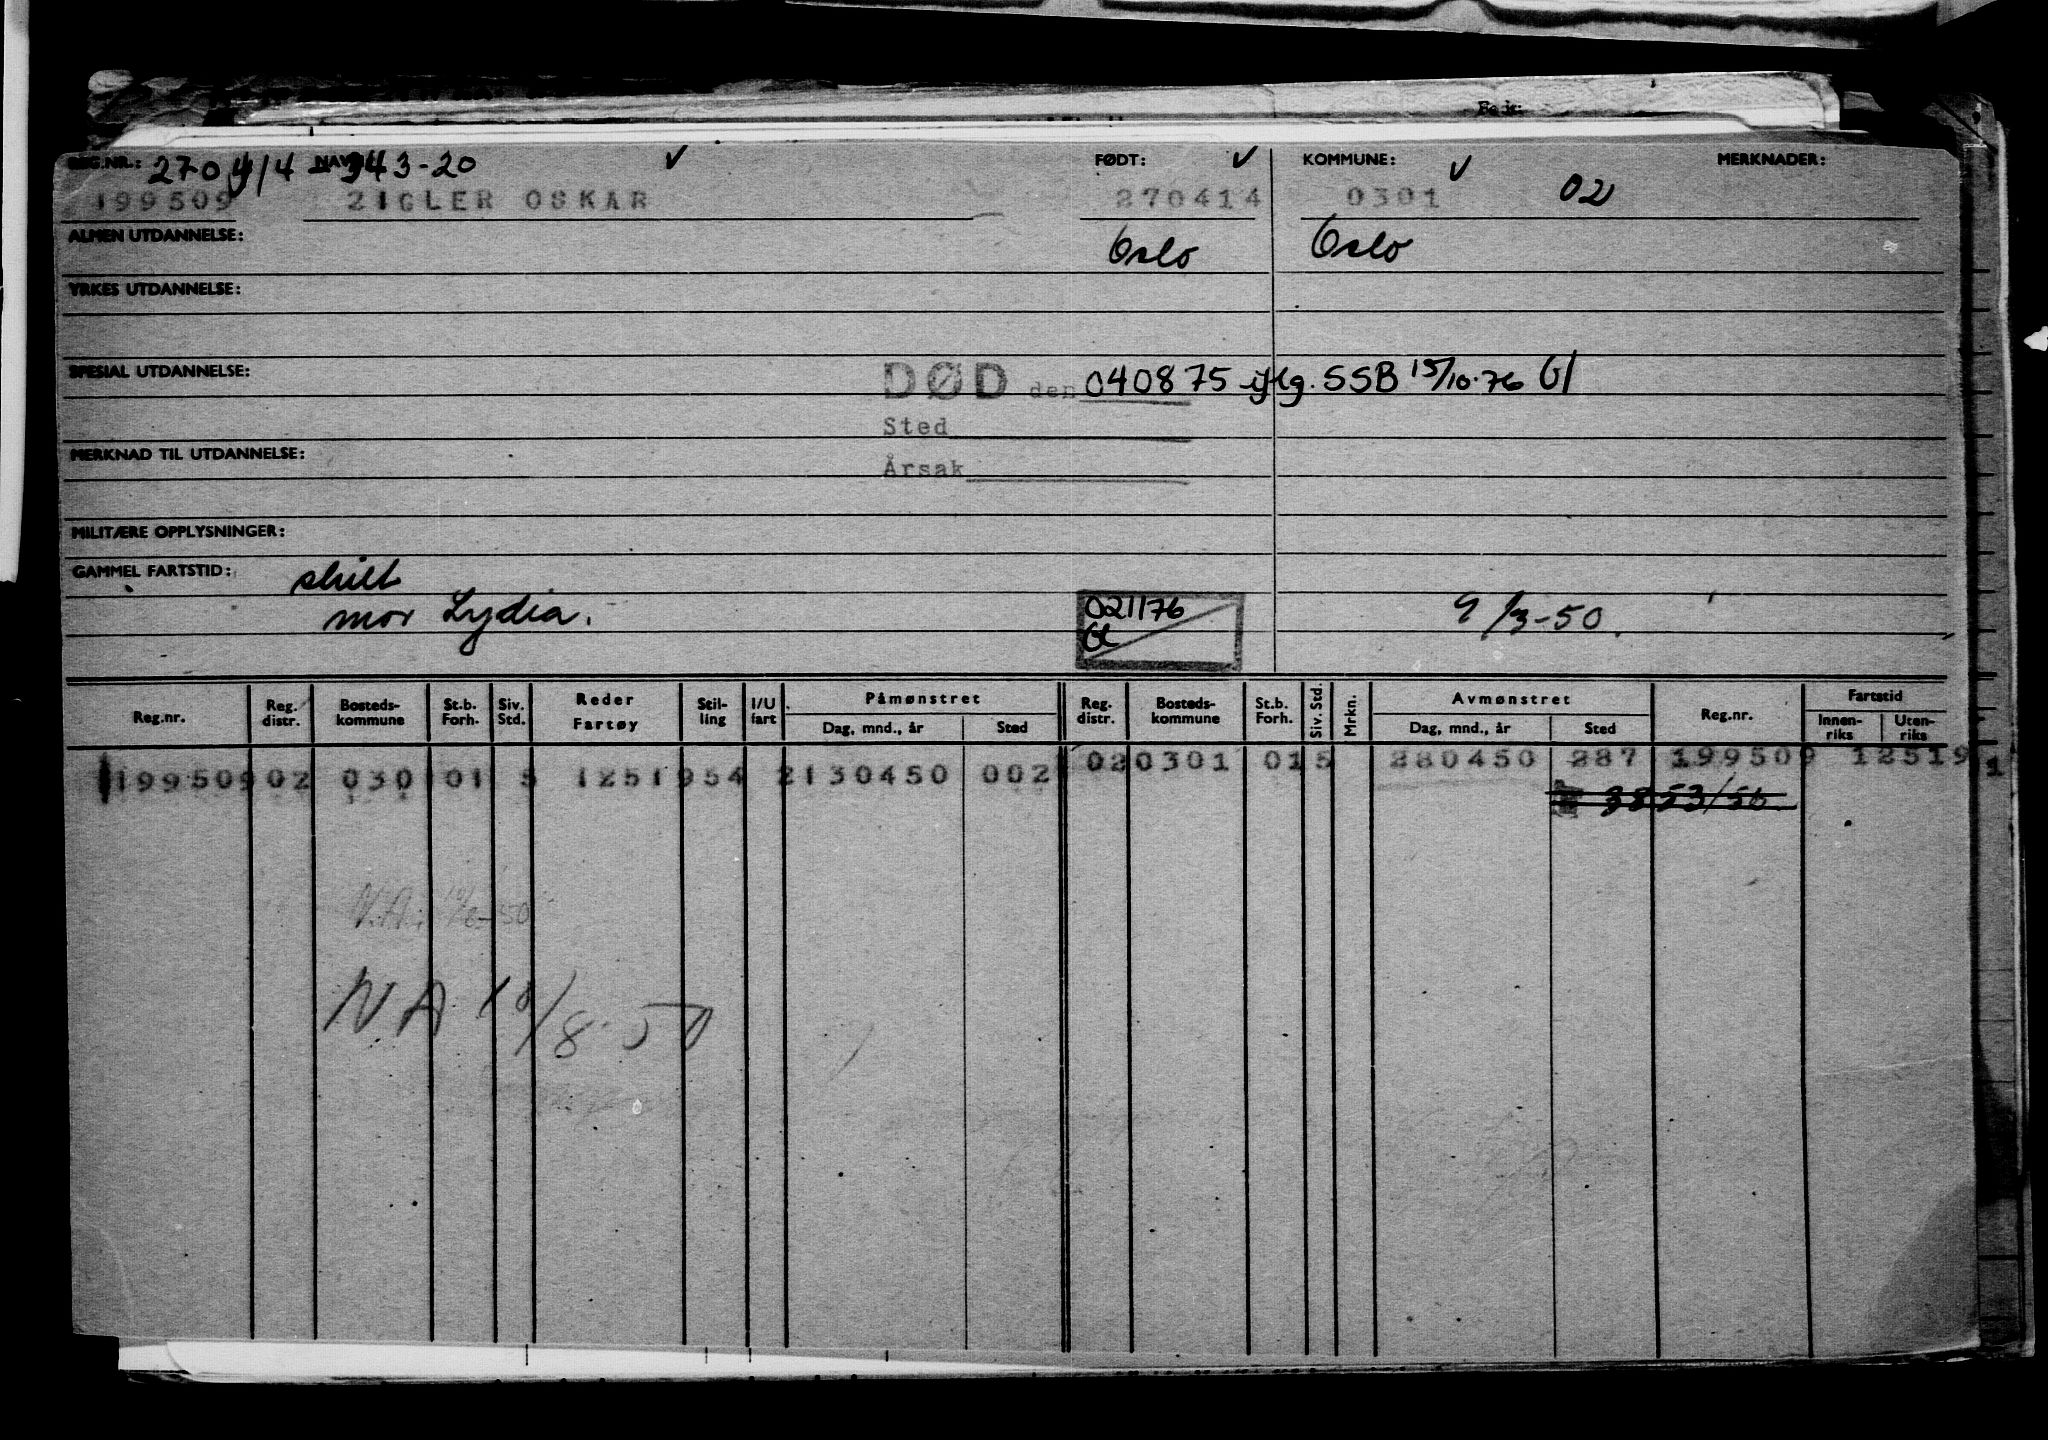 REG.NR.: 270414 NAVN 343-20 FØDT: KOMMUNE: MERKNADER:
199509 ZIGLER OSKAR 270414 0301 02
ALMEN UTDANNELSE: Oslo Oslo
YRKES UTDANNELSE:
SPESIAL UTDANNELSE: DØD den 040875 iflg. SSB 15/10-76
Sted
MERKNAD TIL UTDANNELSE:
Årsak
MILITÆRE OPPLYSNINGER:
GAMMEL FARTSTID: skilt
mor Lydia. 021176 9/3-50.
Reg.nr. Reg. distr. Bosteds-kommune St.b. Forh. Siv. Std. Reder Fartøy Stil-ling I/U fart Påmønstret Dag, mnd., år Sted Reg. distr. Bosteds-kommune St.b. Forh. Siv. Std. Mrkn. Avmønstret Dag, mnd., år Sted Reg.nr. Fartstid Innen-riks Uten-riks
199509 02 030 01 5 1251954 2130450 002 02 0301 01 5 280450 287 199509 12519
3853/50
N.A. 10/6-50
NA 10/8-50